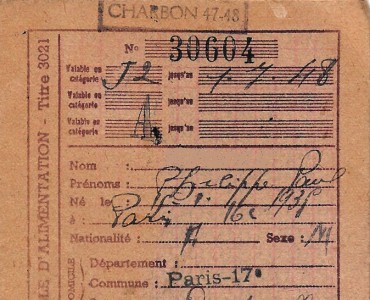 CHARBON 47-48
No 30604
Valable en catégorie J2 jusqu'au 1.7.48
Valable en catégorie jusqu'au
Valable en catégorie A. jusqu'au
Nom :
Prénoms : Philippe Paul
Né le
à : Paris 16e 1931
Nationalité : F Sexe : M
Département :
Commune : Paris-17e
E D'ALIMENTATION - Titre 3021
DOMICILE